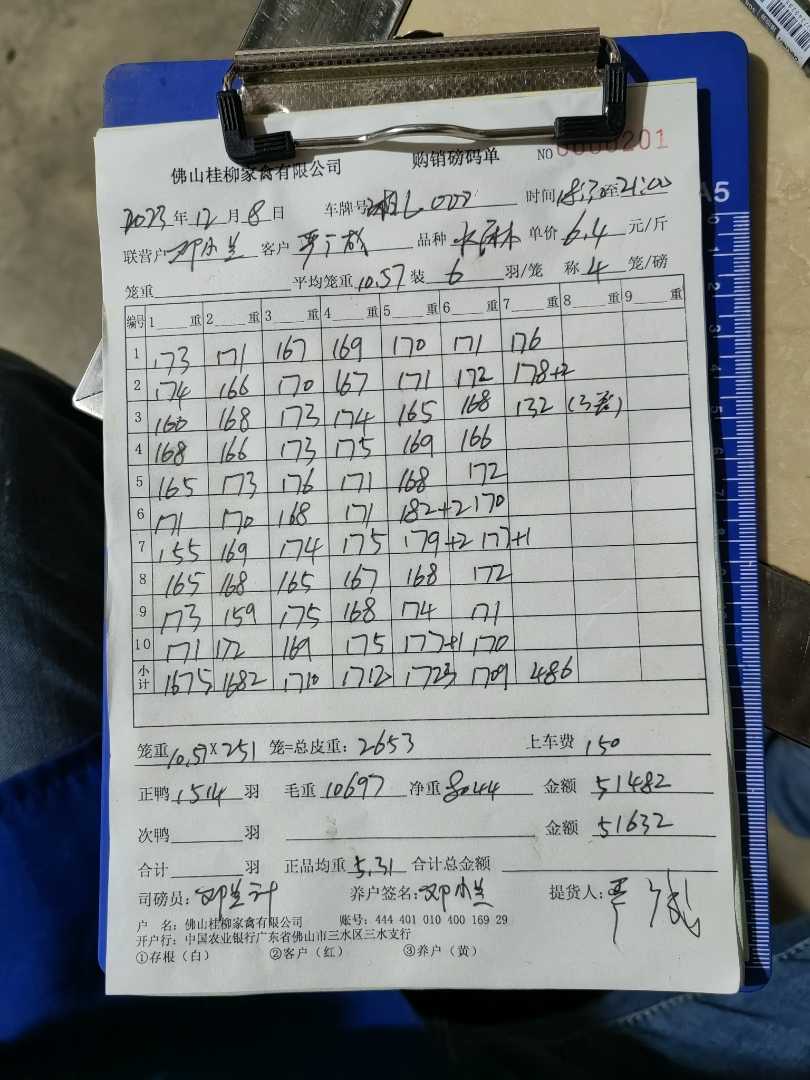 佛山桂柳家禽有限公司 购销磅码单 NO 0000201
2023 年 12 月 8 日 车牌号 L 000 时间 18:30至21:00
联营户 邓小兰 客户 品种 单价 6.4 元/斤
笼重 平均笼重 10.57 装 6 羽/笼 称 4 笼/磅
编号 1 重 2 重 3 重 4 重 5 重 6 重 7 重 8 重 9 重
1 173 171 167 169 170 171 176
2 174 166 170 167 171 172 178+2
3 160 168 173 174 165 168 132 (3)
4 168 166 173 175 169 166
5 165 173 176 171 168 172
6 171 170 168 171 182+2 170
7 155 169 174 175 179+2 177+1
8 165 168 165 167 168 172
9 173 159 175 168 174 171
10 171 172 169 175 177+1 170
小计 1675 1682 1710 1712 1723 1709 486
笼重 10.57 X 251 笼=总皮重: 2653 上车费 150
正鸭 1514 羽 毛重 10697 净重 8044 金额 51482
次鸭 羽 金额 51632
合计 羽 正品均重 5.31 合计总金额
司磅员: 养户签名: 邓小兰 提货人:
户 名: 佛山桂柳家禽有限公司 账号: 444 401 010 400 169 29
开户行: 中国农业银行广东省佛山市三水区三水支行
①存根(白) ②客户(红) ③养户(黄)
A5